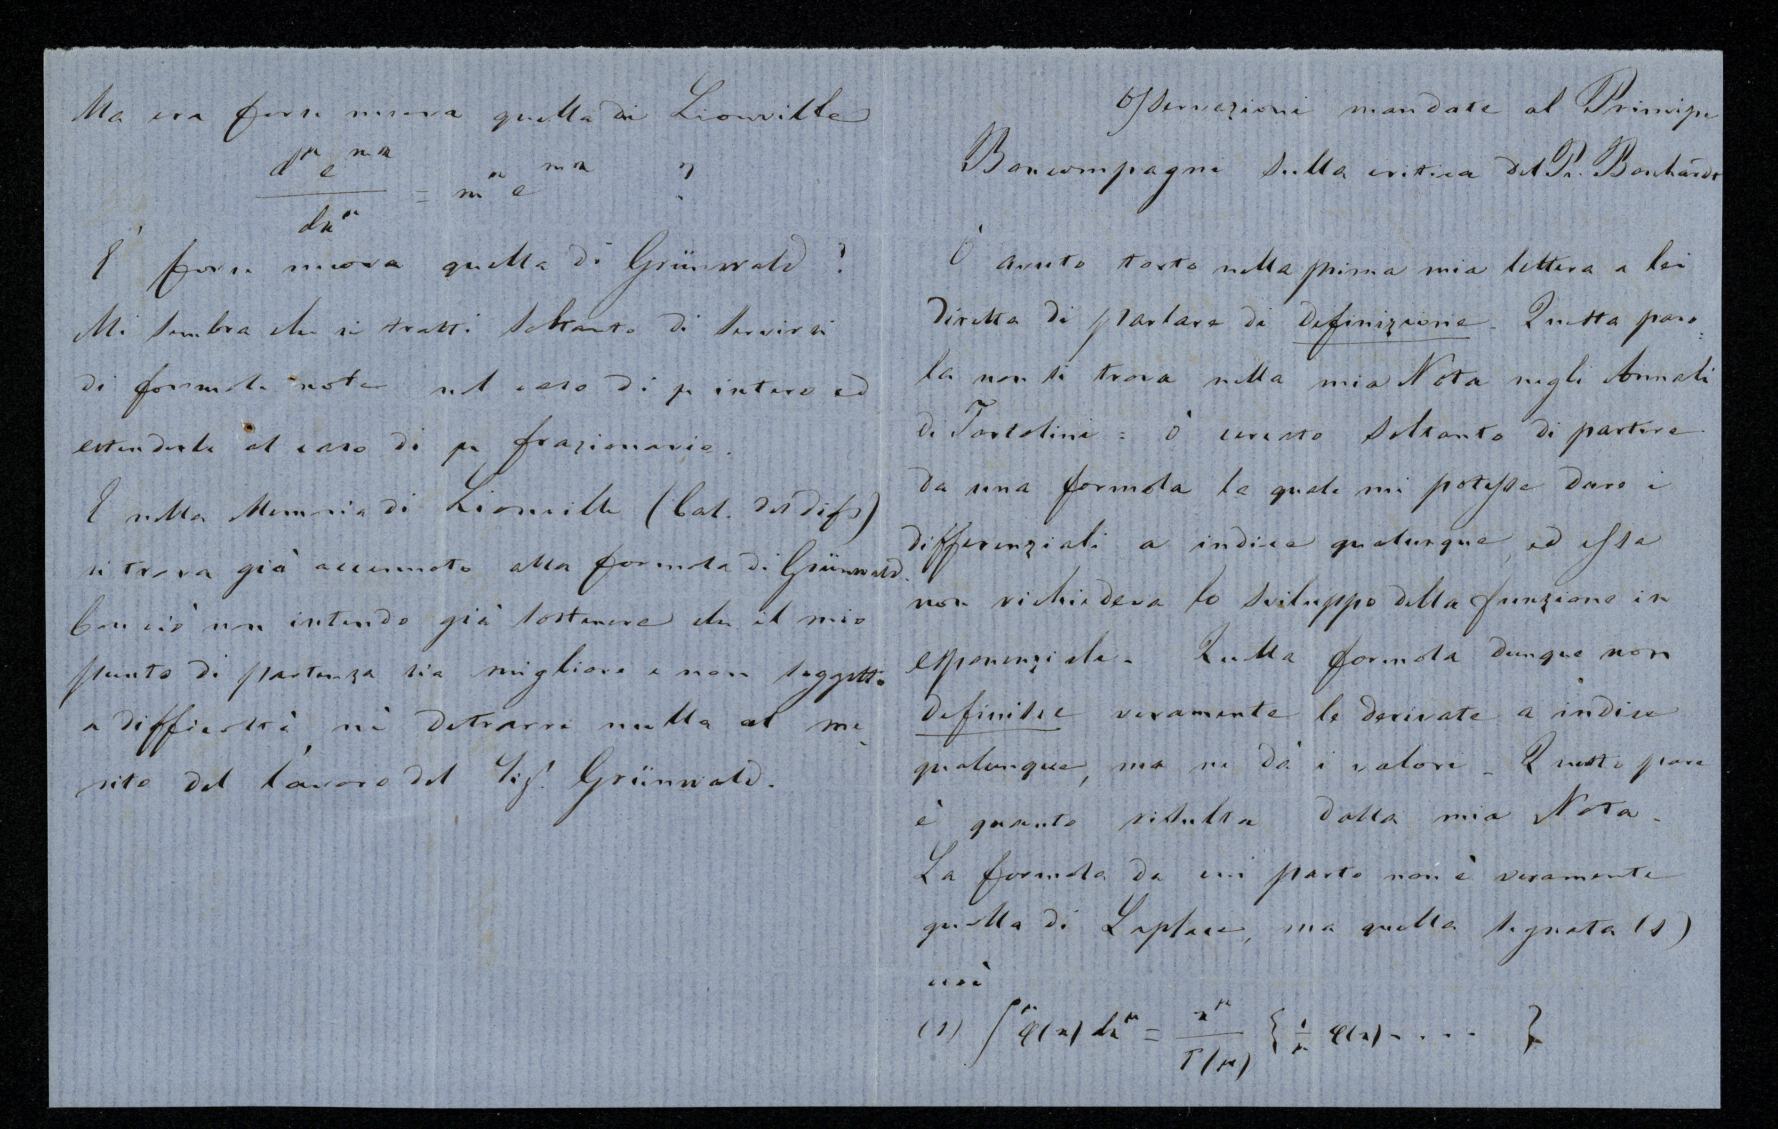 Ma era forse nuova quella di Liouville
d^μ e^{mx} / dx^μ = m^μ e^{mx} ?
E' forse nuova quella di Grünwald?
Mi sembra che si tratti soltanto di servirsi
di formole note nel caso di μ intero ed
estenderle al caso di μ frazionario.
E nella Memoria di Liouville (Cal. des diffs)
si trova già accennato alla formola di Grünwald.
Con ciò non intendo già sostenere che il mio
punto di partenza sia migliore e non soggetto
a difficoltà, nè detrarre nulla al me-
rito del lavoro del Sig.r Grünwald.
Osservazioni mandate al Principe
Boncompagni sulla critica del Pr. Borchardt
Ò avuto torto nella prima mia lettera a lei
diretta di parlare di definizione. Questa paro=
la non si trova nella mia Nota negli Annali
di Tortolini: ò cercato soltanto di partire
da una formola la quale mi potesse dare i
differenziali a indice qualunque, ed essa
non richiedeva lo sviluppo della funzione in
esponenziale. Quella formola dunque non
definisce veramente le derivate a indice
qualunque, ma ne dà i valori. Questo pare
è quanto risulta dalla mia Nota.
La formola da cui parto non è veramente
quella di Laplace, ma quella segnata (1)
cioè
(1) ∫^μ φ(x) dx^μ = x^μ / Γ(μ) { 1/μ φ(x) - . . . . }